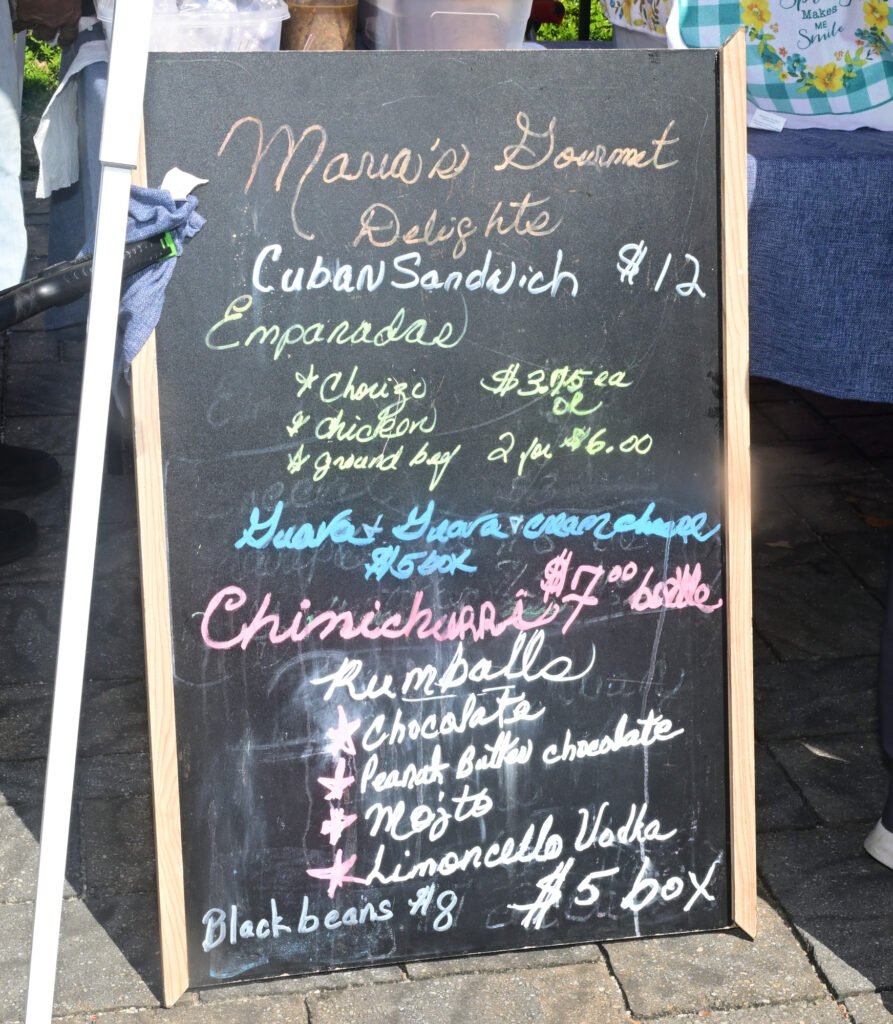 Makes
ME
Smile
Maria's Gourmet
Delights
Cuban Sandwich $12
Empanadas
* Chorizo $3.75 ea
or
* chicken
* ground beef 2 for $6.00
Guava + Guava + cream cheese
$5 box
Chimichurri $7.00 bottle
Rumballs
* Chocolate
* Peanut Butter chocolate
* Mojito
* Limoncello Vodka
Black beans $8 $5 box